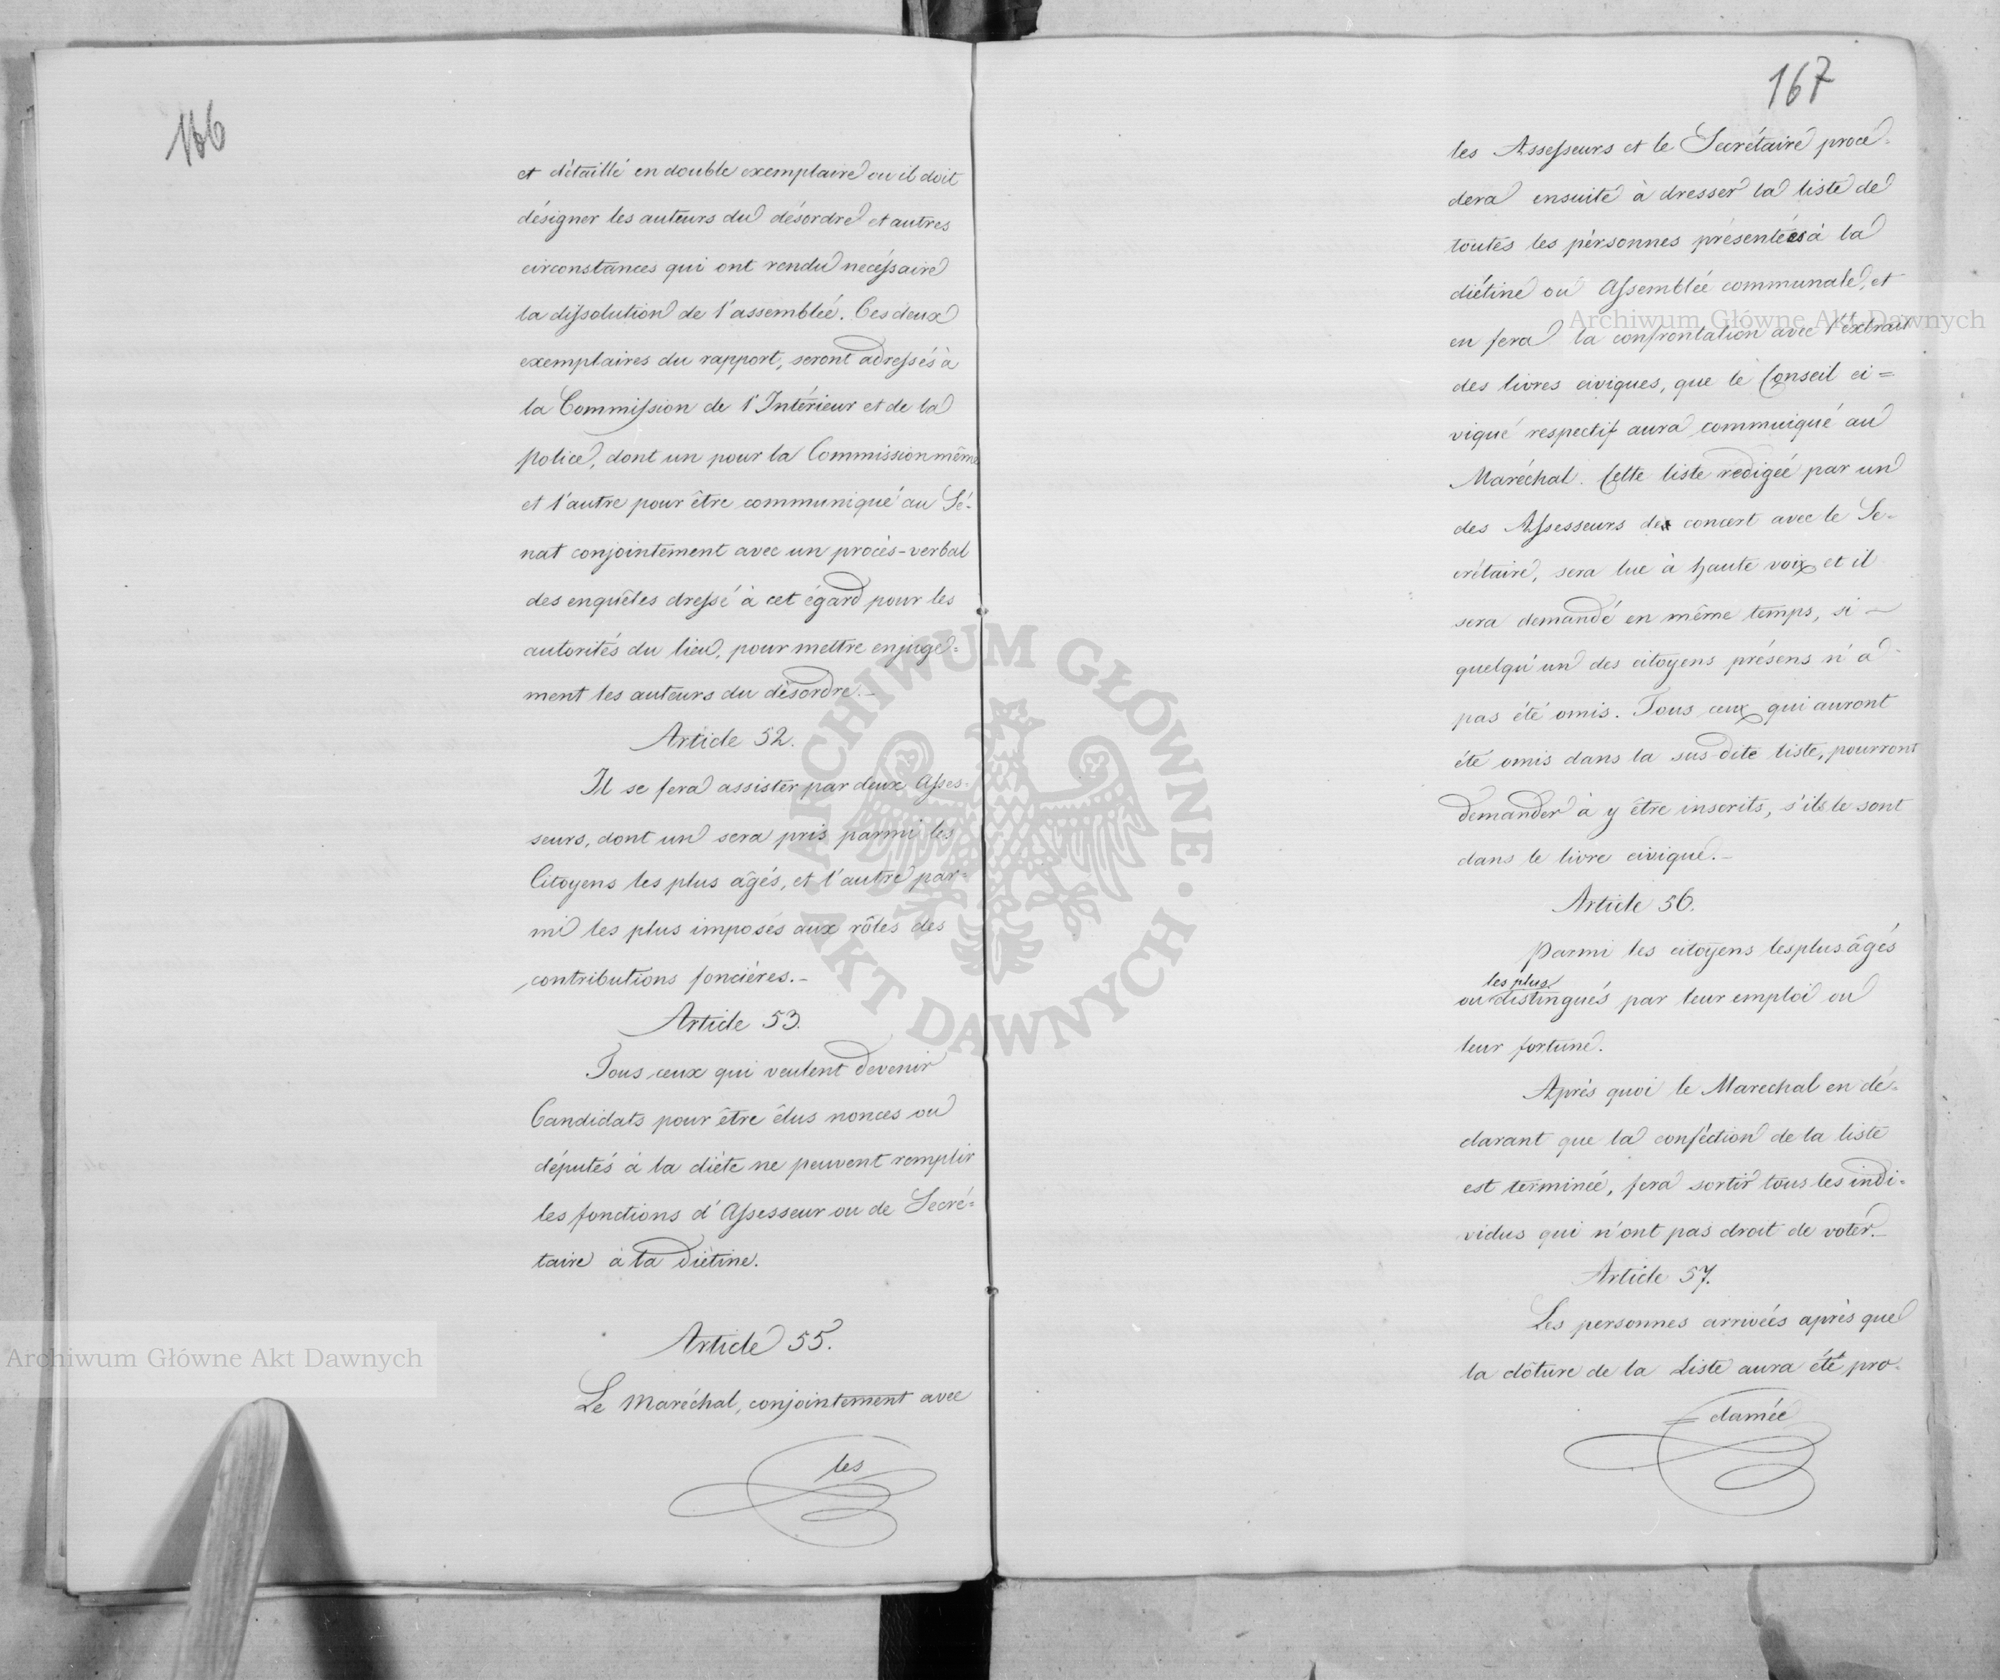 166
et détaillé en double exemplaire ou il doit
désigner les auteurs du désordre et autres
circonstances qui ont rendu necéssaire
la dissolution de l'assemblée. Ces deux
exemplaires du rapport, seront adressés à
la Commission de l'Intérieur et de la
police, dont un pour la Commission même
et l'autre pour être communiqué au Sé-
nat conjointement avec un procès-verbal
des enquêtes dressé à cet égard pour les
autorités du lieu, pour mettre en juge-
ment les auteurs du désordre.-
Article 52.
Il se fera assister par deux Asses-
seurs, dont un sera pris parmi les
Citoyens les plus âgés, et l'autre par-
mi les plus imposés aux rôles des
contributions foncières.-
Article 53.
Tous ceux qui veulent devenir
Candidats pour être élus nonces ou
députés à la diéte ne peuvent remplir
les fonctions d'Assesseur ou de Secré-
taire à la diétine.
Article 55.
Le Maréchal, conjointement avec
les
167
les Assesseurs et le Secrétaire proce-
dera ensuite à dresser la liste de
toutes les personnes présentées à la
diétine ou Assemblée communale, et
en fera la confrontation avec l'éxtrait
des livres civiques, que le Conseil ci=
vique respectif aura commuiqué au
Maréchal. Cette liste redigée par un
des Assesseurs de concert avec le Se-
crétaire, sera lue à haute voix et il
sera demandé en même temps, si -
quelqu'un des citoyens présens n'a
pas été omis. Tous ceux qui auront
été omis dans la sus dite liste, pourront
demander à y être inscrits, s'ils le sont
dans le livre civique.-
Article 56.
Parmi les citoyens les plus âgés
les plus
ou distingués par leur emploi ou
leur fortune.
Après quoi le Marechal en dé-
clarant que la conféction de la liste
est terminée, fera sortir tous les indi-
vidus qui n'ont pas droit de voter.-
Article 57.
Les personnes arrivées après que
la clôture de la Liste aura été pro-
= clamée
Archiwum Główne Akt Dawnych
Archiwum Główne Akt Dawnych
ARCHIWUM GŁÓWNE · AKT DAWNYCH ·